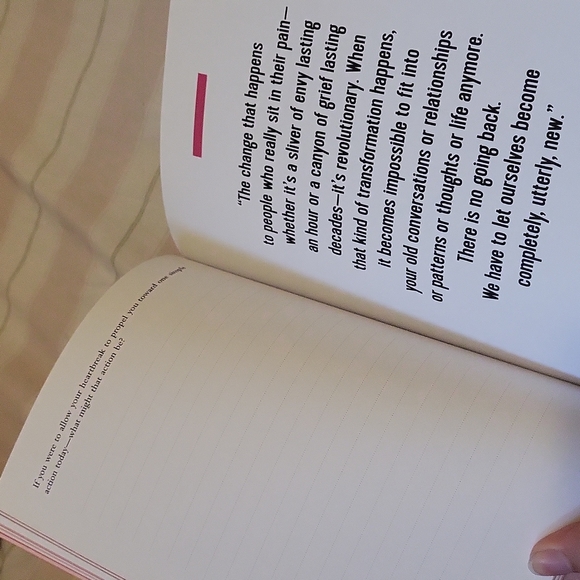 “The change that happens
to people who really sit in their pain—
whether it’s a sliver of envy lasting
an hour or a canyon of grief lasting
decades—it’s revolutionary. When
that kind of transformation happens,
it becomes impossible to fit into
your old conversations or relationships
or patterns or thoughts or life anymore.
There is no going back.
We have to let ourselves become
completely, utterly, new.”
If you were to allow your heartbreak to propel you toward one single
action today—what might that action be?